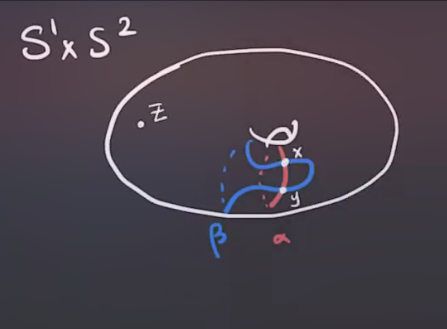 S¹×S²
z
x
y
β
α